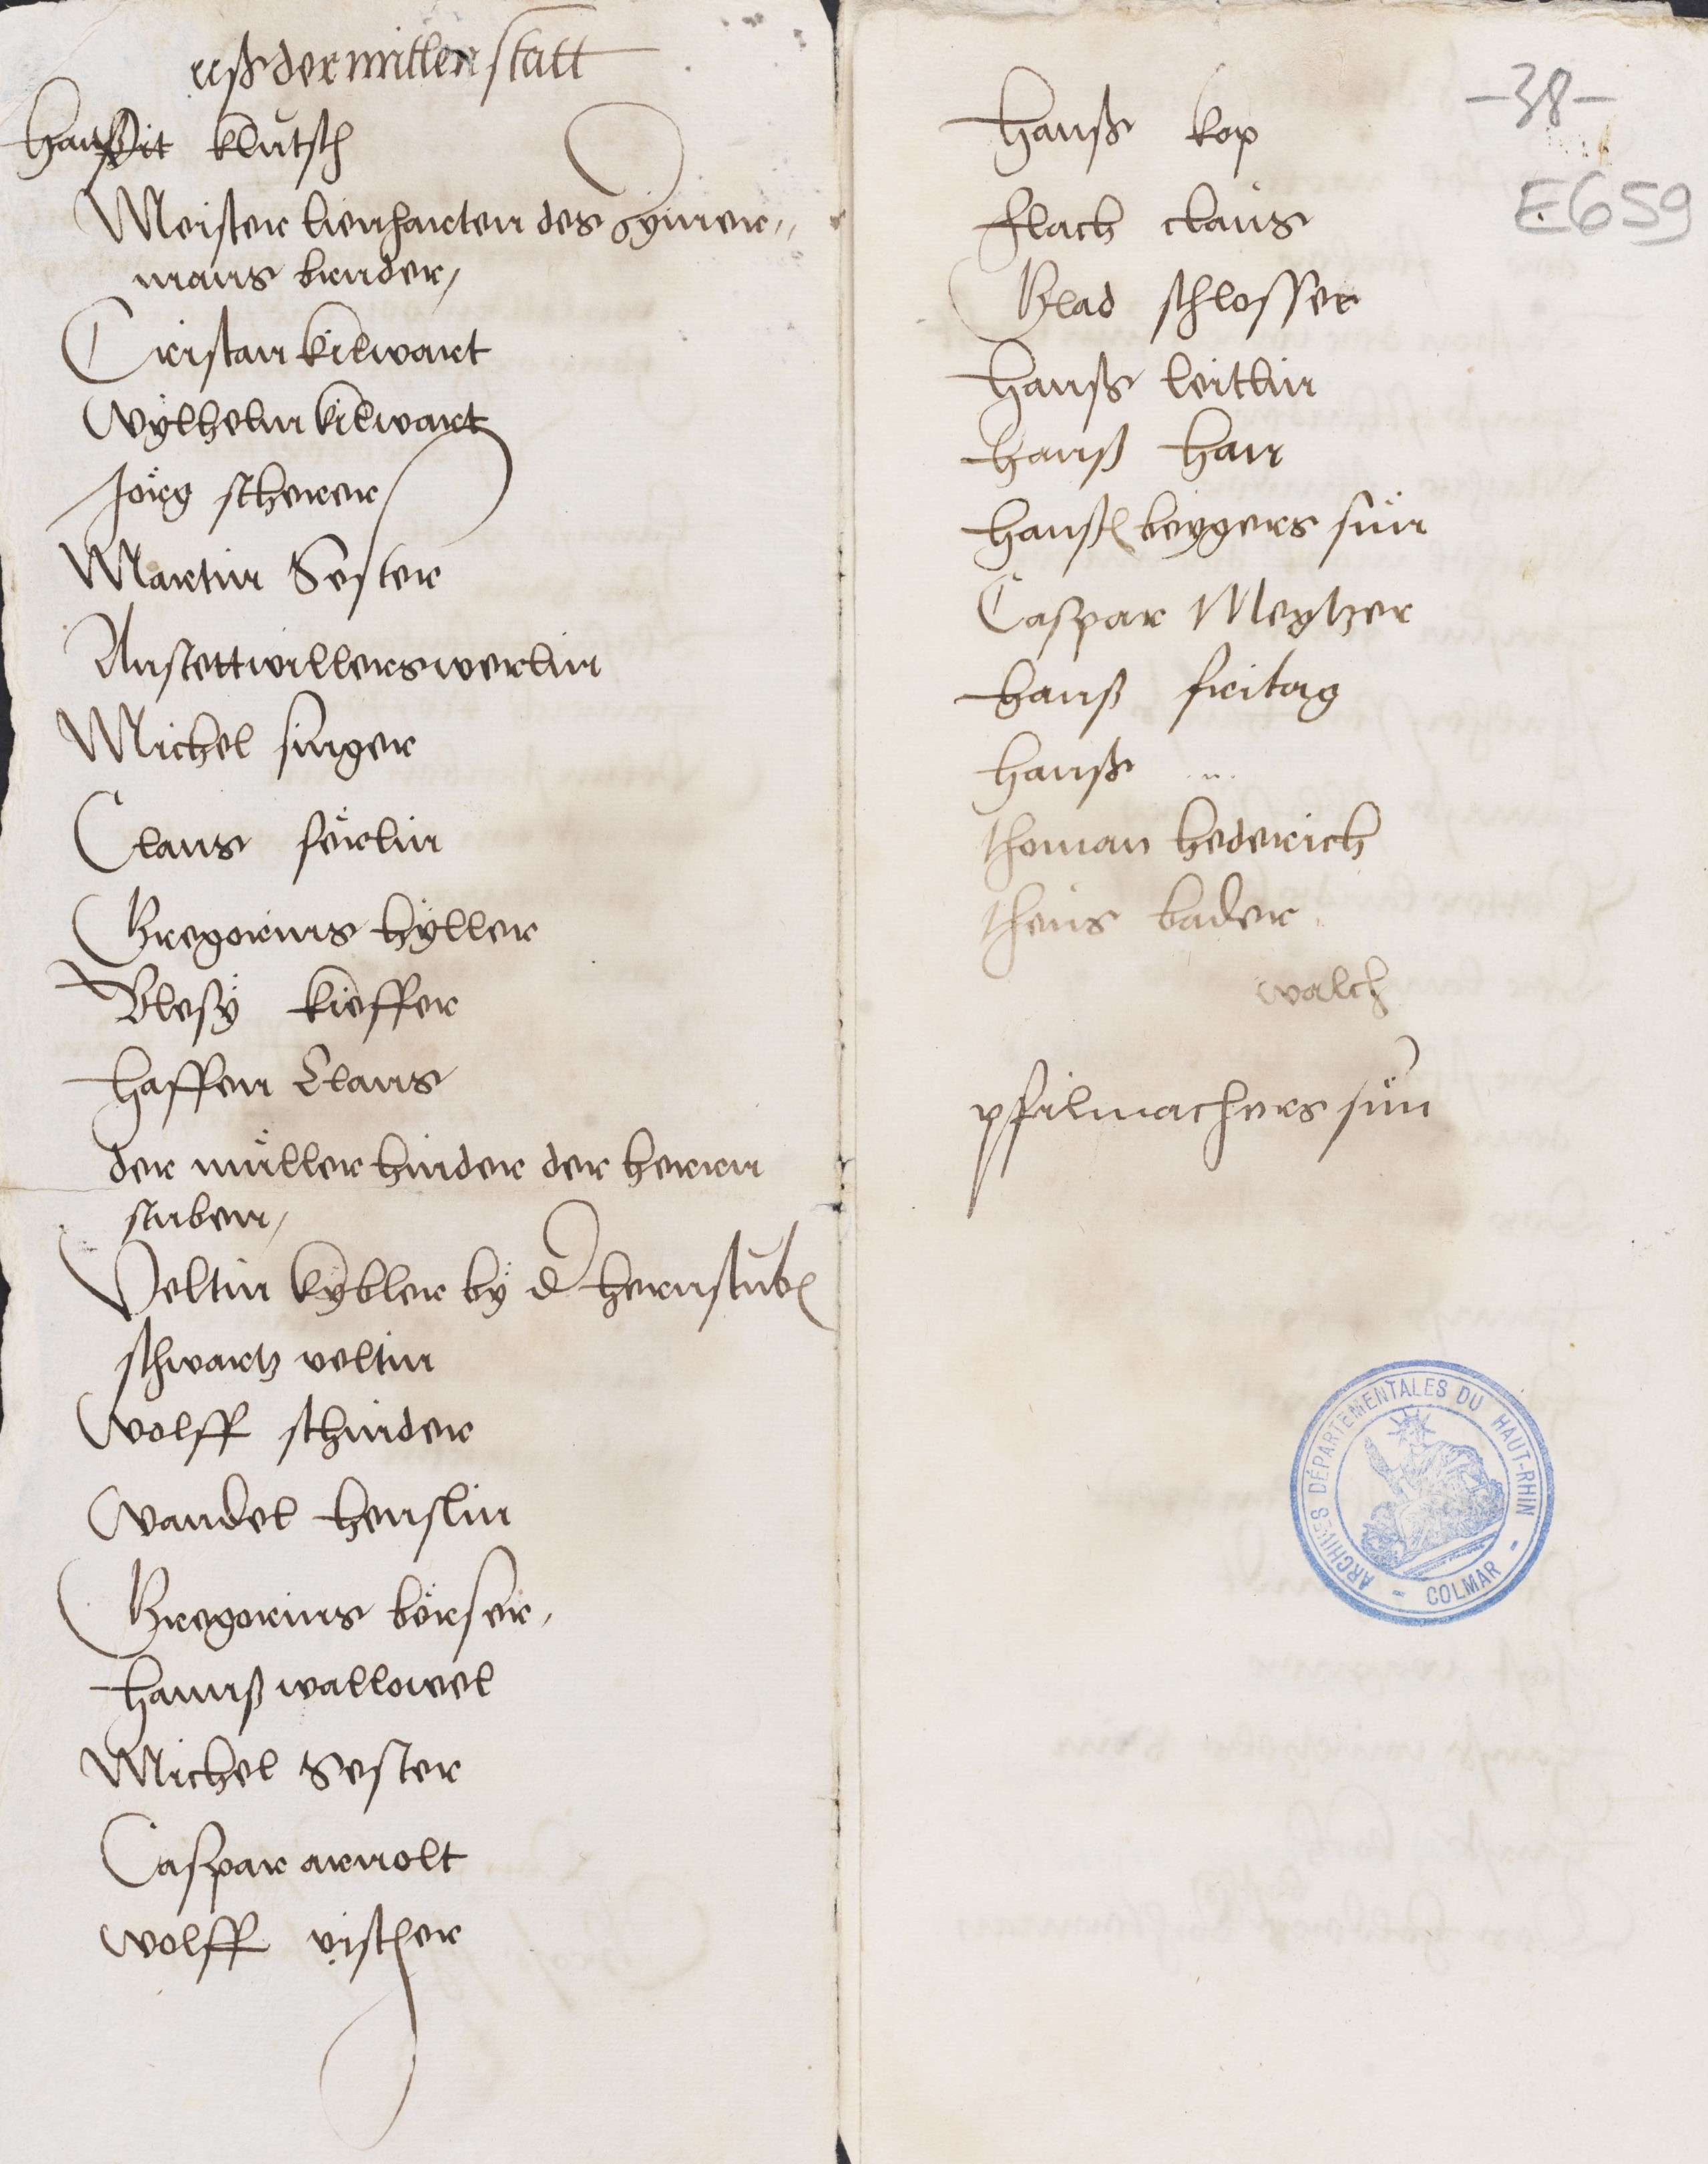 uß der mitlen statt
Hans Vit klutsch
Meister lienharten des zymer„
mans kinder,
Cristan kilwart
Wÿlhelm kilwart
Jörg scherer
Martin Sester
Anstett willers werlin
Michel singer
Claus sörlin
Gregorius hÿller
Blesÿ kieffer
Haffen Claus
der müller hinder der herren
stuben,
Veltin kÿbler bÿ d hernstub
schwartz veltin
Wolff schinder
Wandel henslin
Gregorius börser,
Hanns wallowel
Michel Sester
Caspar arnolt
Wolff vischer
Hanß kop
flach claus
Blad schlosser
Hanß leitlin
Hanß han
Hanß beygers sün
Caspar Meytzer
Hanß fritag
Hanß ...
thoman hederich
theus bader
walch
pfilmachers sün
-38-
E659
ARCHIVES DÉPARTEMENTALES DU HAUT-RHIN
- COLMAR -